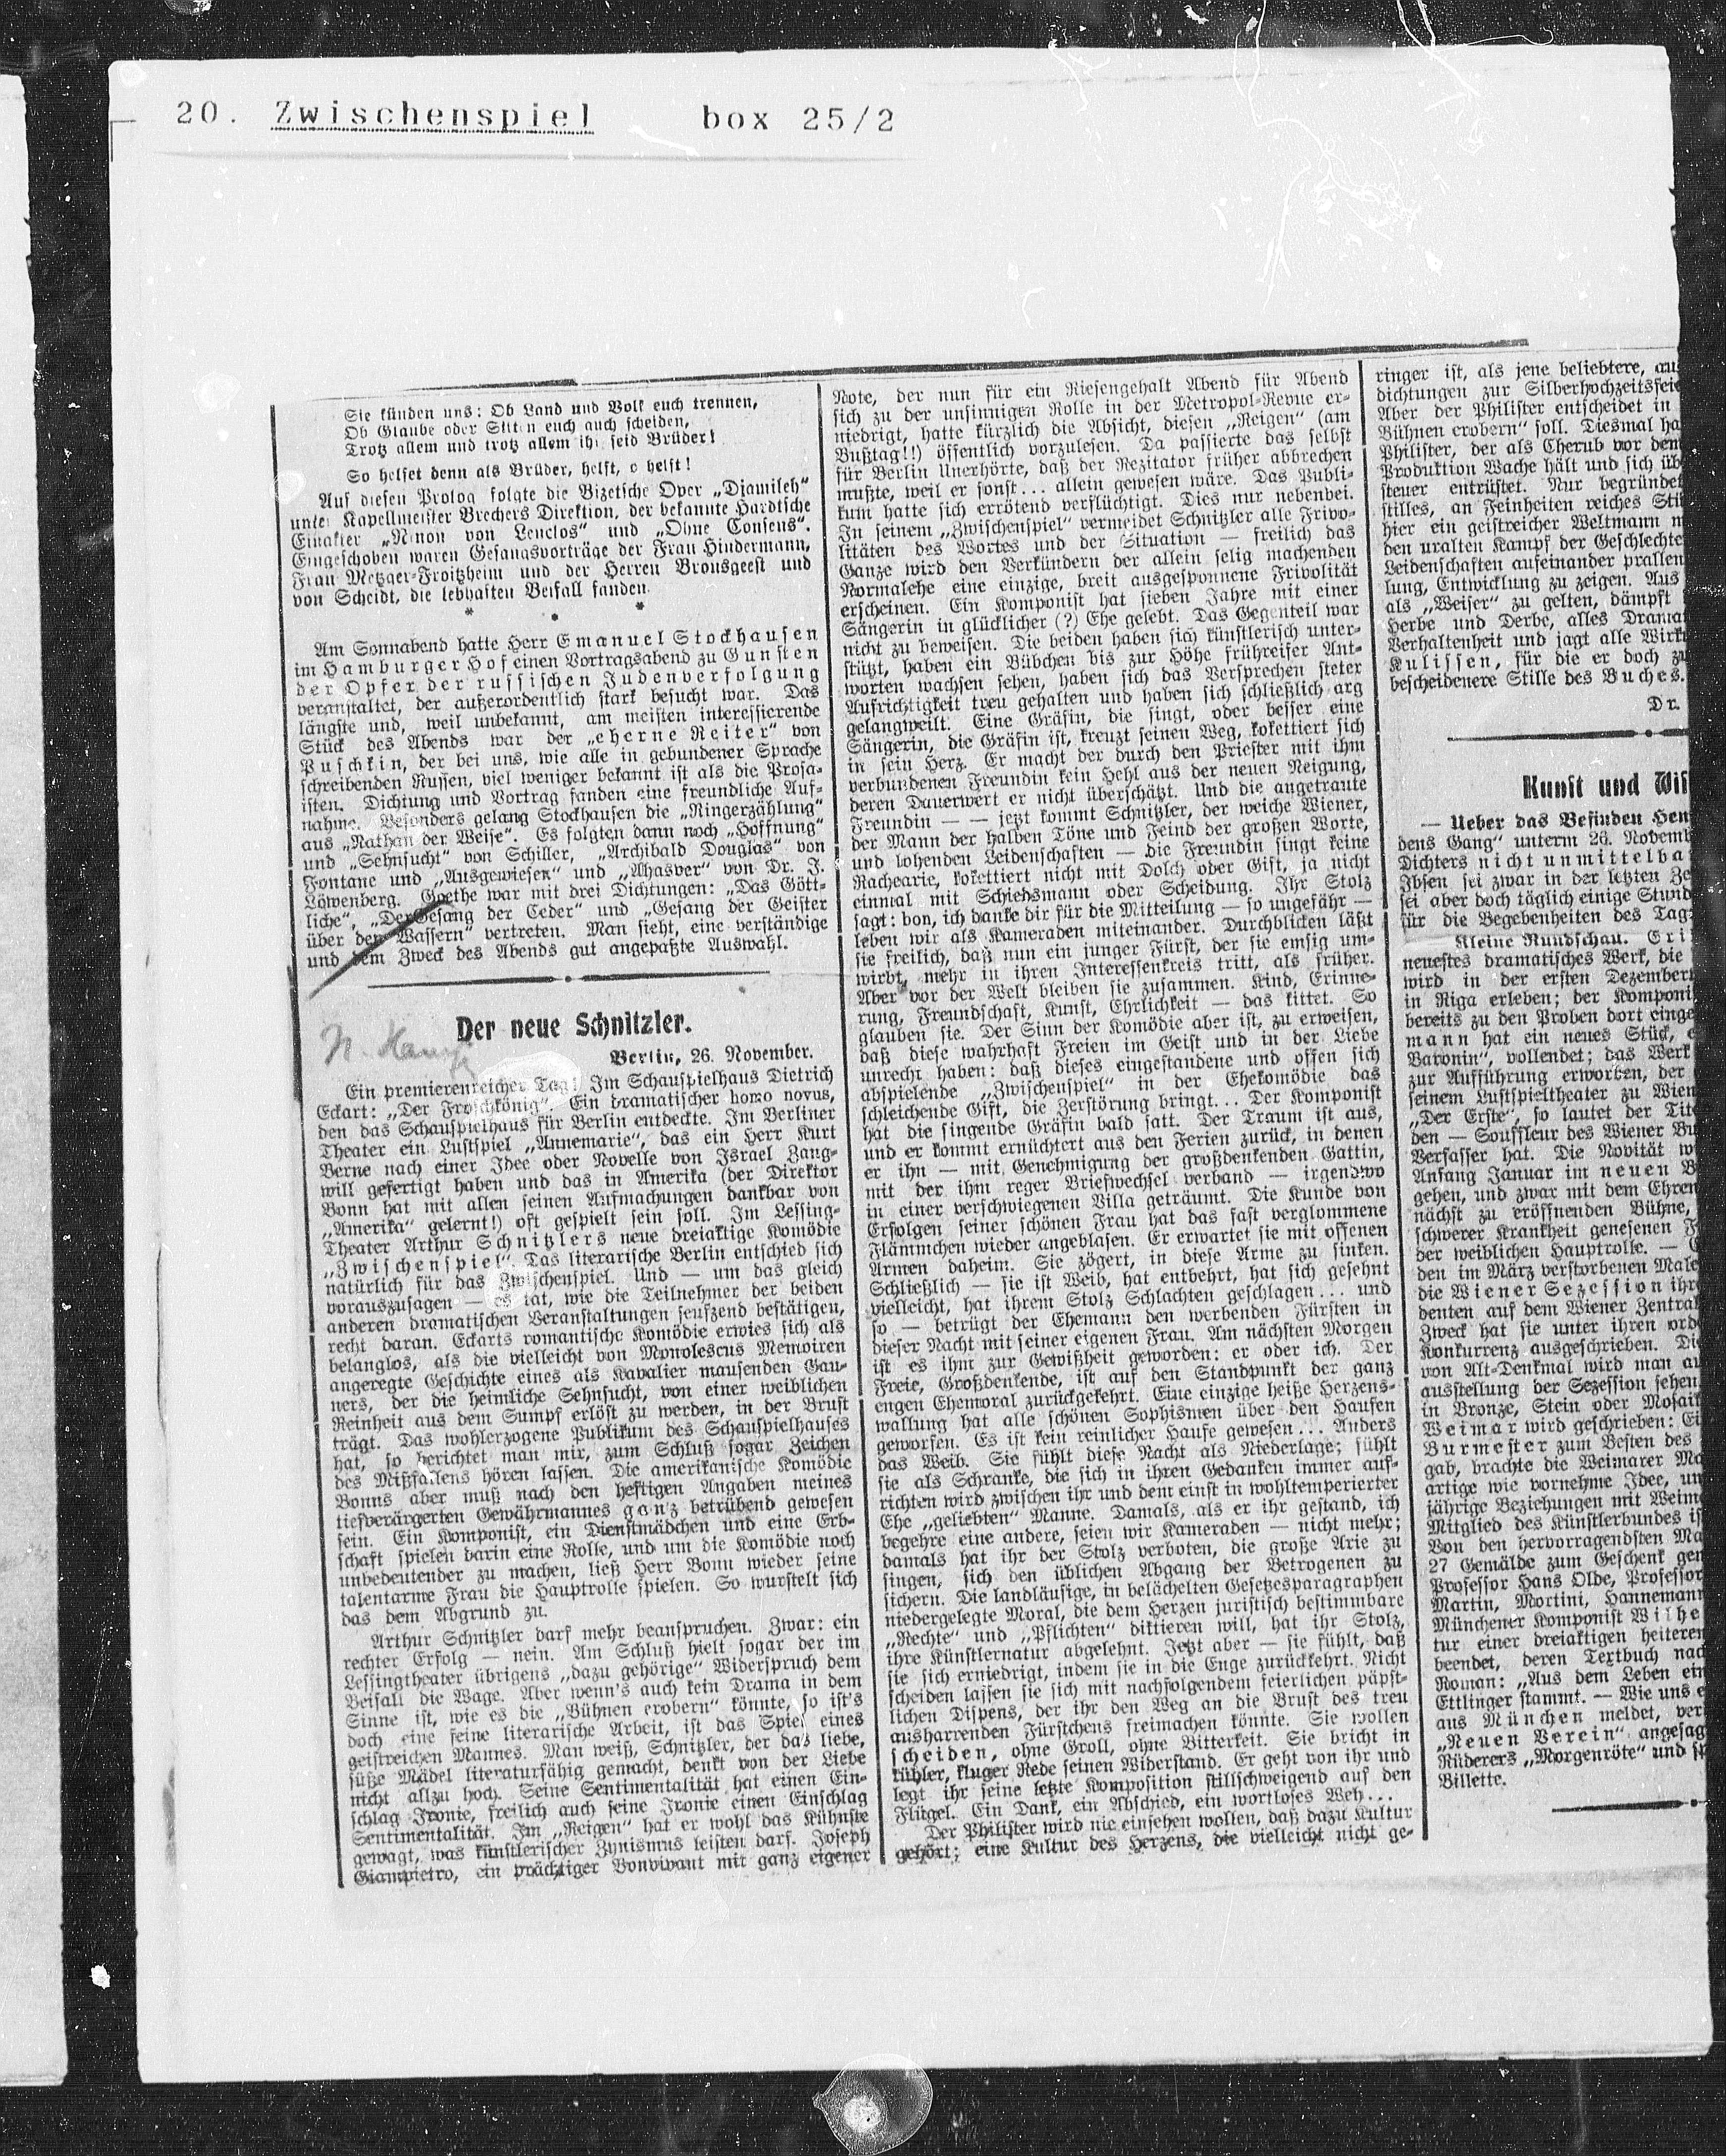 20. Zwischenspiel box 25/2
Sie künden uns: Ob Land und Volk euch trennen,
Ob Glaube oder Sitten euch auch scheiden,
Trotz allem und trotz allem ihr seid Brüder!
So helfet denn als Brüder, helft, o helft!
Auf diesen Prolog folgte die Bizetsche Oper „Djamileh“
unter Kapellmeister Brechers Direktion, der bekannte Hardtsche
Einakter „Ninon von Lenclos“ und „Ohne Consens“.
Eingeschoben waren Gesangsvorträge der Frau Hindermann,
Frau Metzger-Froitzheim und der Herren Bronsgeest und
von Scheidt, die lebhaften Beifall fanden.
* * *
Am Sonnabend hatte Herr Emanuel Stockhausen
im Hamburger Hof einen Vortragsabend zu Gunsten
der Opfer der russischen Judenverfolgung
veranstaltet, der außerordentlich stark besucht war. Das
längste und, weil unbekannt, am meisten interessierende
Stück des Abends war der „eherne Reiter“ von
Puschkin, der bei uns, wie alle in gebundener Sprache
schreibenden Russen, viel weniger bekannt ist als die Prosa-
isten. Dichtung und Vortrag fanden eine freundliche Auf-
nahme. Besonders gelang Stockhausen die „Ringerzählung“
aus „Nathan der Weise“. Es folgten dann noch „Hoffnung“
und „Sehnsucht“ von Schiller, „Archibald Douglas“ von
Fontane und „Ausgewiesen“ und „Ahasver“ von Dr. J.
Löwenberg. Goethe war mit drei Dichtungen: „Das Gött-
liche“, „Der Gesang der Ceder“ und „Gesang der Geister
über den Wassern“ vertreten. Man sieht, eine verständige
und dem Zweck des Abends gut angepaßte Auswahl.
Der neue Schnitzler.
Berlin, 26. November.
Ein premierenreicher Tag! Im Schauspielhaus Dietrich
Eckart: „Der Froschkönig“. Ein dramatischer homo novus,
den das Schauspielhaus für Berlin entdeckte. Im Berliner
Theater ein Lustspiel „Annemarie“, das ein Herr Kurt
Berne nach einer Idee oder Novelle von Israel Zang-
will gefertigt haben und das in Amerika (der Direktor
Bonn hat mit allen seinen Aufmachungen dankbar von
„Amerika“ gelernt!) oft gespielt sein soll. Im Lessing-
Theater Arthur Schnitzlers neue dreiaktige Komödie
„Zwischenspiel“. Das literarische Berlin entschied sich
natürlich für das Zwischenspiel. Und — um das gleich
vorauszusagen — es tat, wie die Teilnehmer der beiden
anderen dramatischen Veranstaltungen seufzend bestätigen,
recht daran. Eckarts romantische Komödie erwies sich als
belanglos, als die vielleicht von Monolescus Memoiren
angeregte Geschichte eines als Kavalier mausenden Gau-
ners, der die heimliche Sehnsucht, von einer weiblichen
Reinheit aus dem Sumpf erlöst zu werden, in der Brust
trägt. Das wohlerzogene Publikum des Schauspielhauses
hat, so berichtet man mir, zum Schluß sogar Zeichen
des Mißfallens hören lassen. Die amerikanische Komödie
Bonns aber muß nach den heftigen Angaben meines
tiefverärgerten Gewährmannes ganz betrübend gewesen
sein. Ein Komponist, ein Dienstmädchen und eine Erb-
schaft spielen darin eine Rolle, und um die Komödie noch
unbedeutender zu machen, ließ Herr Bonn wieder seine
talentarme Frau die Hauptrolle spielen. So wurstelt sich
das dem Abgrund zu.
Arthur Schnitzler darf mehr beanspruchen. Zwar: ein
rechter Erfolg — nein. Am Schluß hielt sogar der im
Lessingtheater übrigens „dazu gehörige“ Widerspruch dem
Beifall die Wage. Aber wenn's auch kein Drama in dem
Sinne ist, wie es die „Bühnen erobern“ könnte, so ist's
doch eine feine literarische Arbeit, ist das Spiel eines
geistreichen Mannes. Man weiß, Schnitzler, der das liebe,
süße Mädel literaturfähig gemacht, denkt von der Liebe
nicht allzu hoch. Seine Sentimentalität hat einen Ein-
schlag Ironie, freilich auch seine Ironie einen Einschlag
Sentimentalität. Im „Reigen“ hat er wohl das Kühnste
gewagt, was künstlerischer Zynismus leisten darf. Joseph
Giampietro, ein prächtiger Bonvivant mit ganz eigener
Note, der nun für ein Riesengehalt Abend für Abend
sich zu der unsinnigen Rolle in der Metropol-Revue er-
niedrigt, hatte kürzlich die Absicht, diesen „Reigen“ (am
Bußtag!!) öffentlich vorzulesen. Da passierte das selbst
für Berlin Unerhörte, daß der Rezitator früher abbrechen
mußte, weil er sonst... allein gewesen wäre. Das Publi-
kum hatte sich errötend verflüchtigt. Dies nur nebenbei.
In seinem „Zwischenspiel“ vermeidet Schnitzler alle Frivo-
litäten des Wortes und der Situation — freilich das
Ganze wird den Verkündern der allein selig machenden
Normalehe eine einzige, breit ausgesponnene Frivolität
erscheinen. Ein Komponist hat sieben Jahre mit einer
Sängerin in glücklicher (?) Ehe gelebt. Das Gegenteil war
nicht zu beweisen. Die beiden haben sich künstlerisch unter-
stützt, haben ein Bübchen bis zur Höhe frühreifer Ant-
worten wachsen sehen, haben sich das Versprechen steter
Aufrichtigkeit treu gehalten und haben sich schließlich arg
gelangweilt. Eine Gräfin, die singt, oder besser eine
Sängerin, die Gräfin ist, kreuzt seinen Weg, kokettiert sich
in sein Herz. Er macht der durch den Priester mit ihm
verbundenen Freundin kein Hehl aus der neuen Neigung,
deren Dauerwert er nicht überschätzt. Und die angetraute
Freundin — — jetzt kommt Schnitzler, der weiche Wiener,
der Mann der halben Töne und Feind der großen Worte,
und lohenden Leidenschaften — die Freundin singt keine
Rachearie, kokettiert nicht mit Dolch oder Gift, ja nicht
einmal mit Schiedsmann oder Scheidung. Ihr Stolz
sagt: bon, ich danke dir für die Mitteilung — so ungefähr —
leben wir als Kameraden miteinander. Durchblicken läßt
sie freilich, daß nun ein junger Fürst, der sie emsig um-
wirbt, mehr in ihren Interessenkreis tritt, als früher.
Aber vor der Welt bleiben sie zusammen. Kind, Erinne-
rung, Freundschaft, Kunst, Ehrlichkeit — das kittet. So
glauben sie. Der Sinn der Komödie aber ist, zu erweisen,
daß diese wahrhaft Freien im Geist und in der Liebe
unrecht haben: daß dieses eingestandene und offen sich
abspielende „Zwischenspiel“ in der Ehekomödie das
schleichende Gift, die Zerstörung bringt... Der Komponist
hat die singende Gräfin bald satt. Der Traum ist aus,
und er kommt ernüchtert aus den Ferien zurück, in denen
er ihn — mit Genehmigung der großdenkenden Gattin,
mit der ihm reger Briefwechsel verband — irgendwo
in einer verschwiegenen Villa geträumt. Die Kunde von
Erfolgen seiner schönen Frau hat das fast verglommene
Flämmchen wieder angeblasen. Er erwartet sie mit offenen
Armen daheim. Sie zögert, in diese Arme zu sinken.
Schließlich — sie ist Weib, hat entbehrt, hat sich gesehnt
vielleicht, hat ihrem Stolz Schlachten geschlagen... und
so — betrügt der Ehemann den werbenden Fürsten in
dieser Nacht mit seiner eigenen Frau. Am nächsten Morgen
ist es ihm zur Gewißheit geworden: er oder ich. Der
Freie, Großdenkende, ist auf den Standpunkt der ganz
engen Ehemoral zurückgekehrt. Eine einzige heiße Herzens-
wallung hat alle schönen Sophismen über den Haufen
geworfen. Es ist kein reinlicher Haufe gewesen... Anders
das Weib. Sie fühlt diese Nacht als Niederlage; fühlt
sie als Schranke, die sich in ihren Gedanken immer auf-
richten wird zwischen ihr und dem einst in wohltemperierter
Ehe „geliebten“ Manne. Damals, als er ihr gestand, ich
begehre eine andere, seien wir Kameraden — nicht mehr;
damals hat ihr der Stolz verboten, die große Arie zu
singen, sich den üblichen Abgang der Betrogenen zu
sichern. Die landläufige, in belächelten Gesetzesparagraphen
niedergelegte Moral, die dem Herzen juristisch bestimmbare
„Rechte“ und „Pflichten“ diktieren will, hat ihr Stolz,
ihre Künstlernatur abgelehnt. Jetzt aber — sie fühlt, daß
sie sich erniedrigt, indem sie in die Enge zurückkehrt. Nicht
scheiden lassen sie sich mit nachfolgendem feierlichen päpst-
lichen Dispens, der ihr den Weg an die Brust des treu
ausharrenden Fürstchens freimachen könnte. Sie wollen
scheiden, ohne Groll, ohne Bitterkeit. Sie bricht in
kühler, kluger Rede seinen Widerstand. Er geht von ihr und
legt ihr seine letzte Komposition stillschweigend auf den
Flügel. Ein Dank, ein Abschied, ein wortloses Weh...
Der Philister wird nie einsehen wollen, daß dazu Kultur
gehört; eine Kultur des Herzens, die vielleicht nicht ge-
ringer ist, als jene beliebtere,
dichtungen zur
Aber der Philister entscheidet in
Bühnen erobern“ soll. Diesmal
Philister, der als Cherub vor dem
Produktion Wache hält und sich
steuer entrüstet. Nur
stilles, an Feinheiten reiches
hier ein geistreicher Weltmann
den uralten Kampf der
Leidenschaften aufeinander
lung, Entwicklung zu zeigen. Aus
als „Weiser“ zu gelten, dämpft
Herbe und Derbe, alles
Verhaltenheit und jagt alle
Kulissen, für die er doch
bescheidenere Stille des Buches.
Dr.
Kunst und
— Ueber das Befinden
dens Gang“ unterm 26.
Dichters nicht
Ibsen sei zwar in der letzten
sei aber doch täglich einige
für die Begebenheiten des
Kleine Rundschau.
neuestes dramatisches Werk, die
wird in der ersten
in Riga erleben; der
bereits zu den Proben dort
mann hat ein neues Stück,
Baronin“, vollendet; das Werk
zur Aufführung erworben, der
seinem Lustspieltheater zu Wien
„Der Erste“, so lautet der
den — Souffleur des Wiener
Verfasser hat. Die Novität
Anfang Januar im neuen
gehen, und zwar mit dem
nächst zu eröffnenden Bühne,
schwerer Krankheit genesenen
der weiblichen Hauptrolle. —
den im März verstorbenen
die Wiener Sezession
denten auf dem Wiener
Zweck hat sie unter ihren
Konkurrenz ausgeschrieben.
von Alt-Denkmal wird man
ausstellung der Sezession sehen.
in Bronze, Stein oder
Weimar wird geschrieben:
Burmester zum Besten des
gab, brachte die Weimarer
artige wie vornehme Idee,
jährige Beziehungen mit
Mitglied des Künstlerbundes
Von den hervorragendsten
27 Gemälde zum Geschenk
Professor Hans Olde,
Martin, Mortini,
Münchener Komponist
tur einer dreiaktigen heiteren
beendet, deren Textbuch
Roman: „Aus dem Leben
Ettlinger stammt. — Wie uns
aus München meldet,
„Neuen Verein“
Rüderers „Morgenröte“ und
Billette.